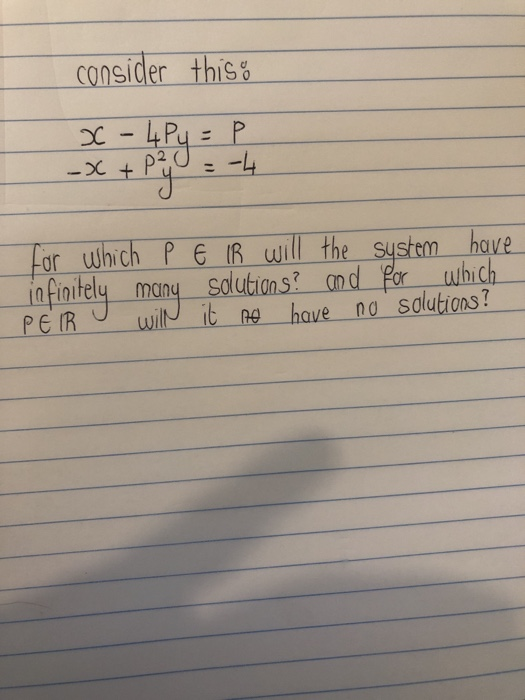 consider this:
x - 4Py = P
-x + P²y = -4
for which P ∈ ℝ will the system have
infinitely many solutions? and for which
P ∈ ℝ will it have no solutions?